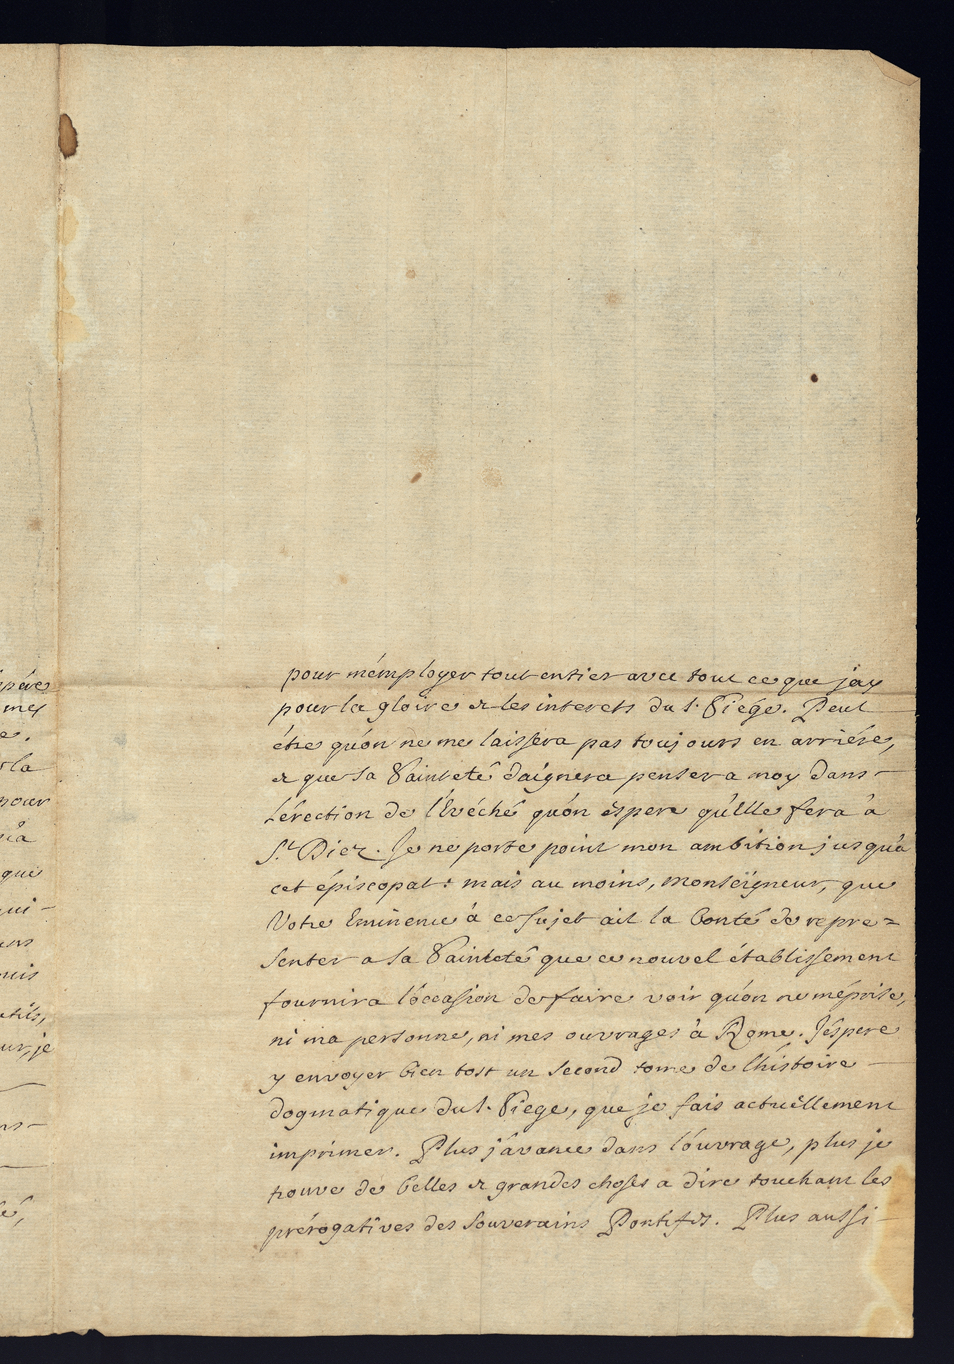 pour mémployer tout entier avec tout ce que jay
pour la gloire & les interets du s. Siége. Peut
étre quón ne me laissera pas toujours en arriére,
& que sa Sainteté daignera penser a moy dans
Lérection de lÉvéché quón éspere quElle fera à
St. Diez. Je ne porte point mon ambition jusquà
cet épiscopat: mais au moins, Monséigneur, que
Votre Eminence à ce sujet ait la bonté de repre=
senter a sa Sainteté que ce nouvel établissement
fournira lóccasion de faire voir quón ne méprise,
ni ma personne, ni mes ouvrages à Rome. Jéspere
y envoyer bien tost un second tome de lhistoire
dogmatique du s. Siege, que je fais actuéllement
imprimer. Plus jávance dans lóuvrage, plus je
trouve de belles & grandes choses a dire touchant les
prérogatives des Souverains Pontifes. Plus aussi
me
e.
la
pour
que
qui-
uis
ur, je